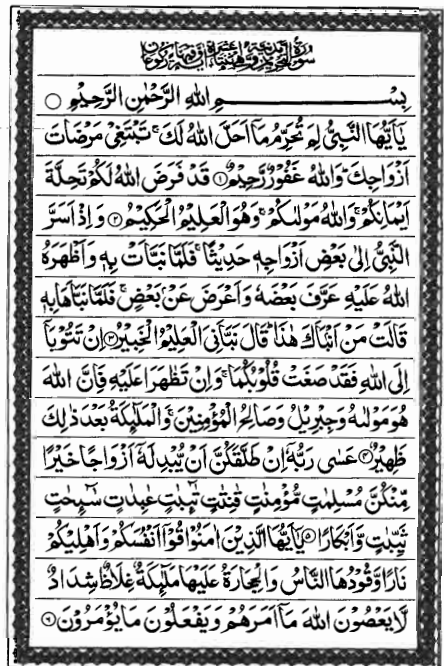 سورة التحريم مدنية وهي اثنتا عشرة آية وفيها ركوعان
بِسْمِ اللهِ الرَّحْمٰنِ الرَّحِيْمِ
يٰۤاَيُّهَا النَّبِيُّ لِمَ تُحَرِّمُ مَاۤ اَحَلَّ اللهُ لَكَ ۚ تَبْتَغِيْ مَرْضَاتَ
اَزْوَاجِكَ ؕ وَاللهُ غَفُوْرٌ رَّحِيْمٌ ۝۱ قَدْ فَرَضَ اللهُ لَكُمْ تَحِلَّةَ
اَيْمَانِكُمْ ۚ وَاللهُ مَوْلٰىكُمْ ۚ وَهُوَ الْعَلِيْمُ الْحَكِيْمُ ۝۲ وَاِذْ اَسَرَّ
النَّبِيُّ اِلٰى بَعْضِ اَزْوَاجِهٖ حَدِيْثًا ۚ فَلَمَّا نَبَّاَتْ بِهٖ وَاَظْهَرَهُ
اللهُ عَلَيْهِ عَرَّفَ بَعْضَهٗ وَاَعْرَضَ عَنْۢ بَعْضٍ ۚ فَلَمَّا نَبَّاَهَا بِهٖ
قَالَتْ مَنْ اَنْۢبَاَكَ هٰذَا ؕ قَالَ نَبَّاَنِيَ الْعَلِيْمُ الْخَبِيْرُ ۝۳ اِنْ تَتُوْبَاۤ
اِلَى اللهِ فَقَدْ صَغَتْ قُلُوْبُكُمَا ۚ وَاِنْ تَظٰهَرَا عَلَيْهِ فَاِنَّ اللهَ
هُوَ مَوْلٰىهُ وَجِبْرِيْلُ وَصَالِحُ الْمُؤْمِنِيْنَ ۚ وَالْمَلٰٓئِكَةُ بَعْدَ ذٰلِكَ
ظَهِيْرٌ ۝۴ عَسٰى رَبُّهٗۤ اِنْ طَلَّقَكُنَّ اَنْ يُّبْدِلَهٗۤ اَزْوَاجًا خَيْرًا
مِّنْكُنَّ مُسْلِمٰتٍ مُّؤْمِنٰتٍ قٰنِتٰتٍ تٰٓئِبٰتٍ عٰبِدٰتٍ سٰٓئِحٰتٍ
ثَيِّبٰتٍ وَّاَبْكَارًا ۝۵ يٰۤاَيُّهَا الَّذِيْنَ اٰمَنُوْا قُوْۤا اَنْفُسَكُمْ وَاَهْلِيْكُمْ
نَارًا وَّقُوْدُهَا النَّاسُ وَالْحِجَارَةُ عَلَيْهَا مَلٰٓئِكَةٌ غِلَاظٌ شِدَادٌ
لَّا يَعْصُوْنَ اللهَ مَاۤ اَمَرَهُمْ وَيَفْعَلُوْنَ مَا يُؤْمَرُوْنَ ۝۶